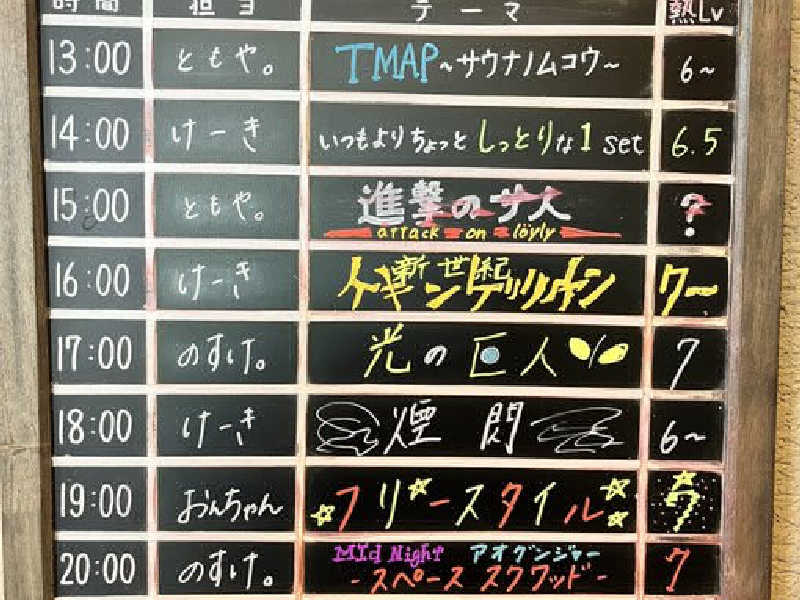 時間 担当 テーマ 熱Lv
13:00 ともや。 TMAP～サウナノムコウ～ 6～
14:00 けーき いつもよりちょっとしっとりな1set 6.5
15:00 ともや。 進撃のサ人 ?
attack on löyly
16:00 けーき 新世紀 7ー
17:00 のすけ。 光の巨人 7
18:00 けーき 煙閃 6～
19:00 おんちゃん フリースタイル
20:00 のすけ。 MId Night アオグンジャー 7
-スペーススクワッド-